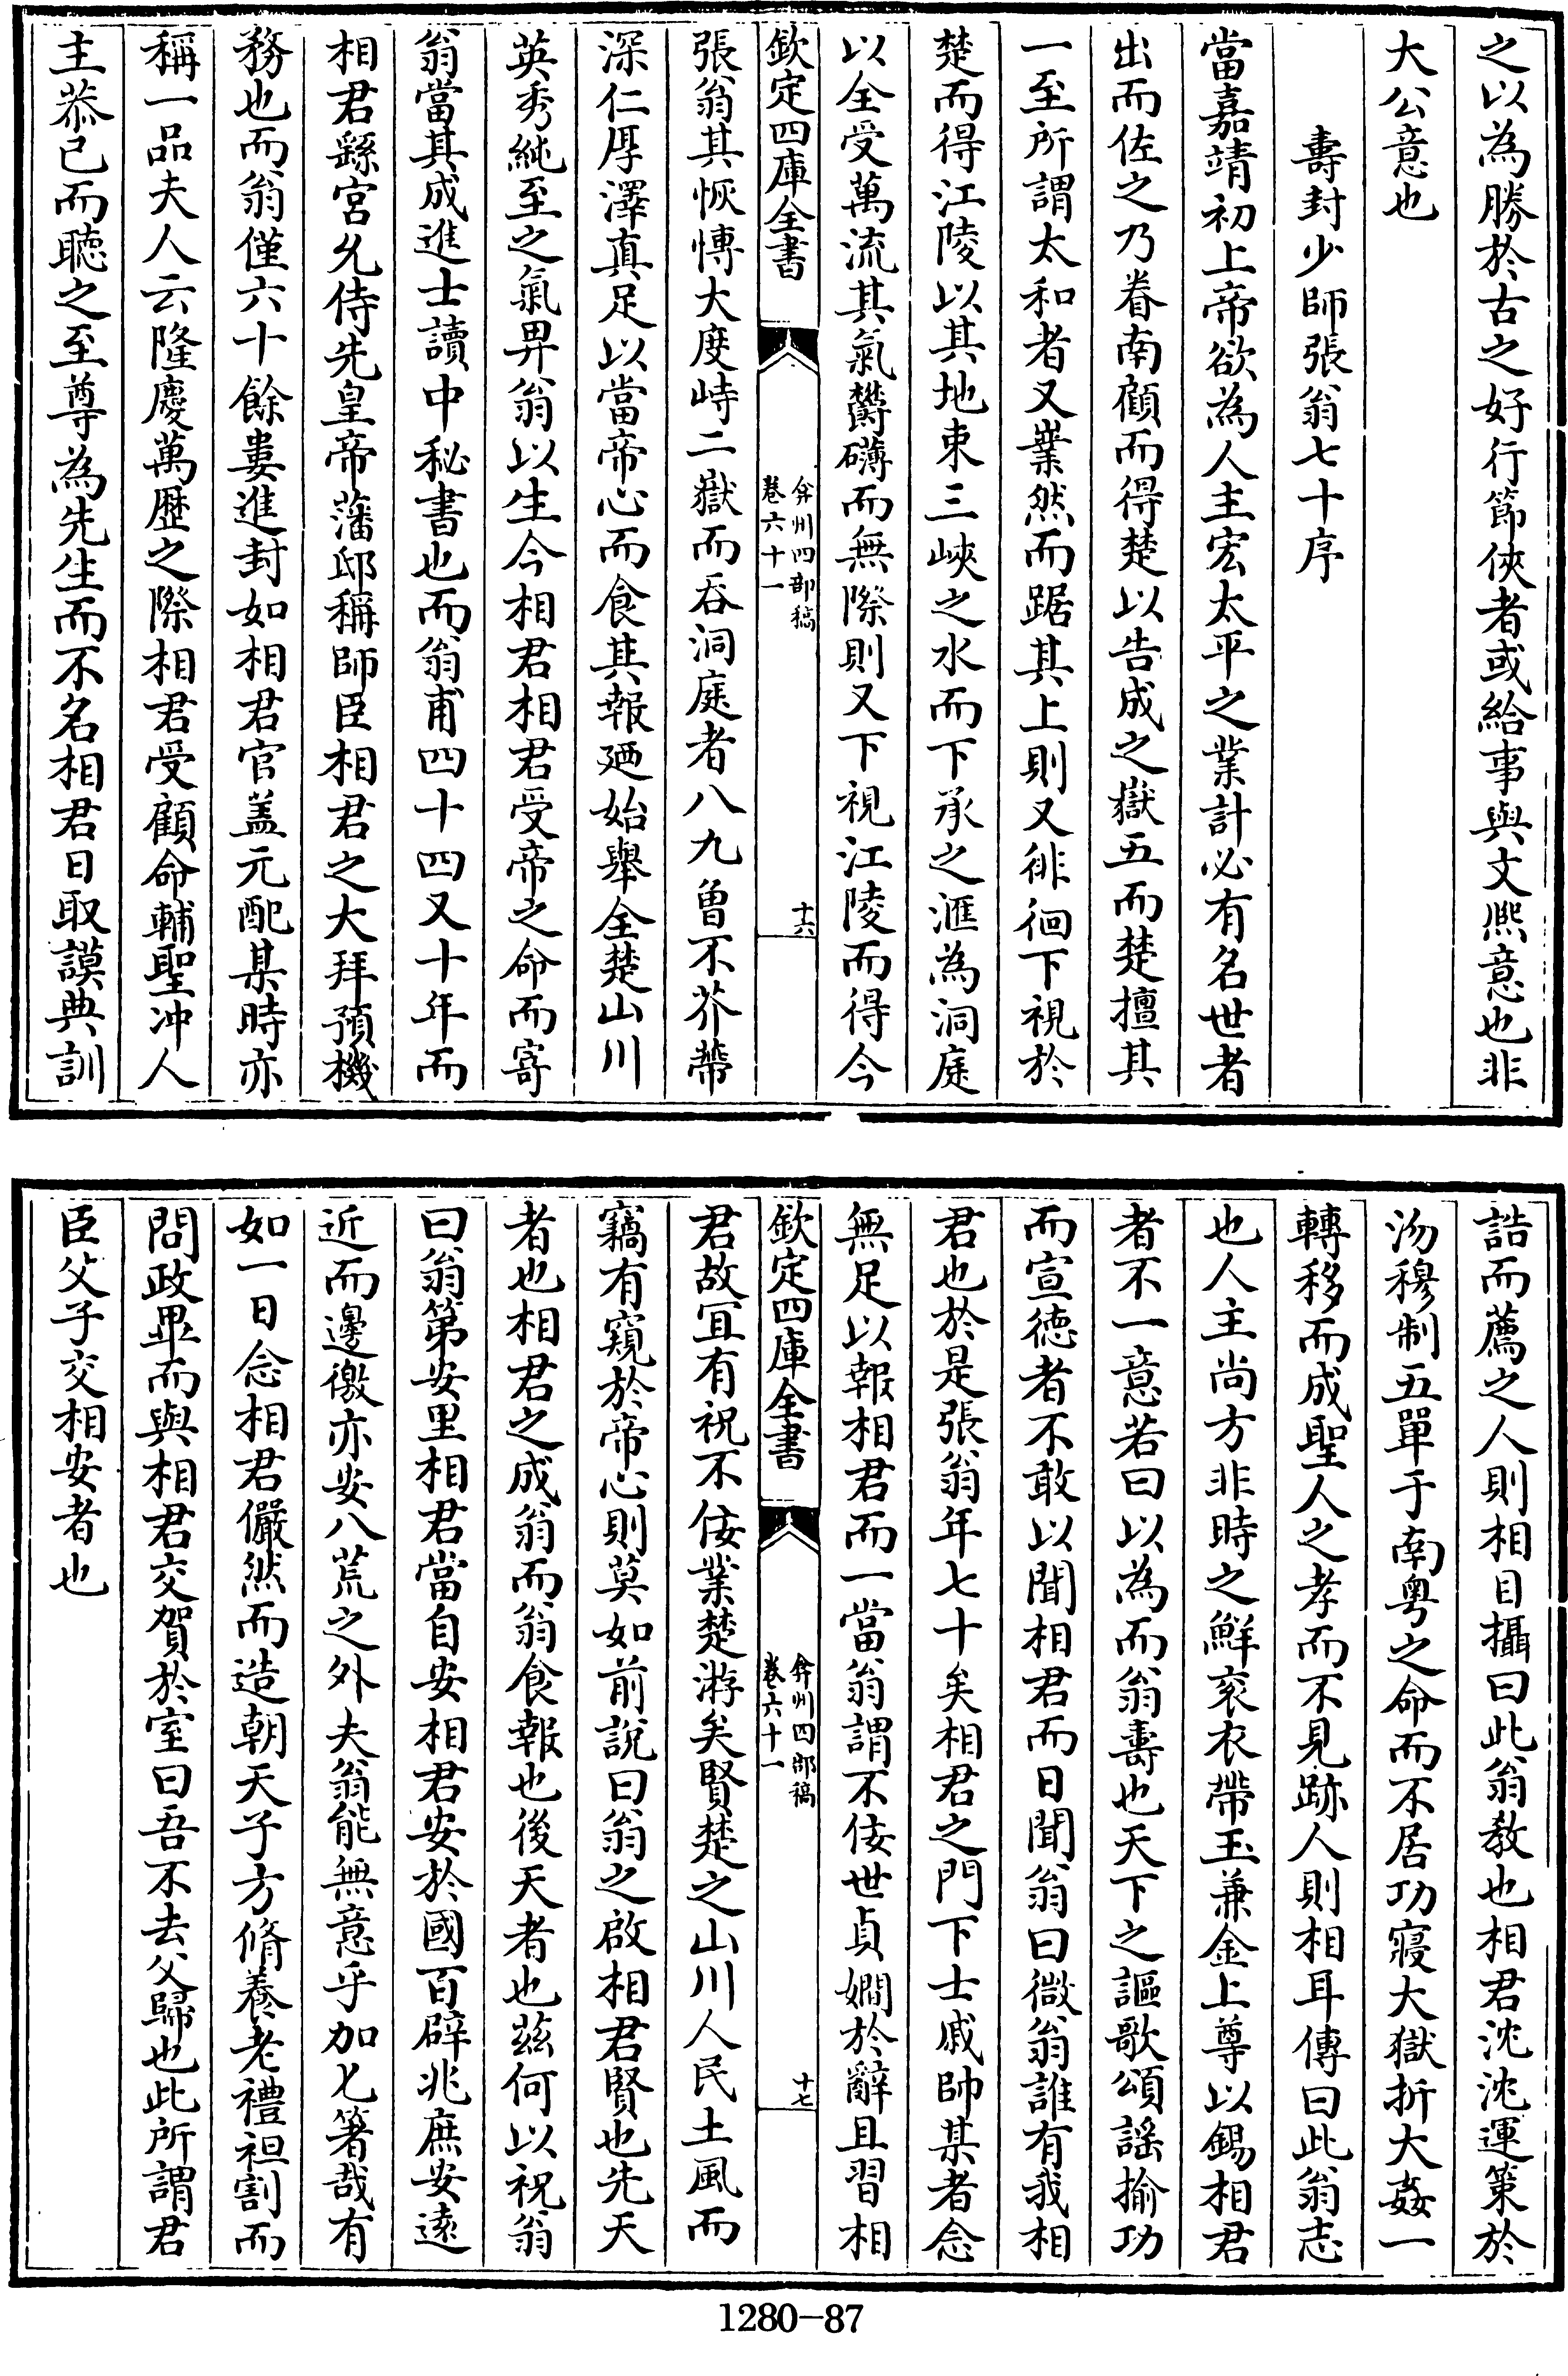 之以為勝於古之好行節俠者或給事與文熈意也非
大公意也
壽封少師張翁七十序
當嘉靖初上帝欲為人主宏太平之業計必有名世者
出而佐之乃眷南顧而得楚以告成之嶽五而楚擅其
一至所謂太和者又嶪然而踞其上則又徘徊下視於
楚而得江陵以其地束三峽之水而下承之滙為洞庭
以全受萬流其氣欝礴而無際則又下視江陵而得今
欽定四庫全書
弇州四部稿
卷六十一
十六
張翁其恢慱大度峙二嶽而吞洞庭者八九曾不芥蔕
深仁厚澤真足以當帝心而食其報廼始舉全楚山川
英秀純至之氣畀翁以生今相君相君受帝之命而寄
翁當其成進士讀中秘書也而翁甫四十四又十年而
相君繇宫允侍先皇帝藩邸稱師臣相君之大拜預機
務也而翁僅六十餘婁進封如相君官盖元配某時亦
稱一品夫人云隆慶萬歴之際相君受顧命輔聖冲人
主恭已而聽之至尊為先生而不名相君日取謨典訓
誥而薦之人則相目攝曰此翁教也相君沈沈運策於
沕穆制五單于南粤之命而不居功寢大獄折大姦一
轉移而成聖人之孝而不見跡人則相耳傳曰此翁志
也人主尚方非時之鮮衮衣帶玉兼金上尊以錫相君
者不一意若曰以為而翁壽也天下之謳歌頌謡揄功
而宣徳者不敢以聞相君而日聞翁曰微翁誰有我相
君也於是張翁年七十矣相君之門下士戚帥某者念
無足以報相君而一當翁謂不佞世貞嫺於辭且習相
欽定四庫全書
弇州四部稿
卷六十一
十七
君故宜有祝不佞業楚游矣賢楚之山川人民土風而
竊有窺於帝心則莫如前説曰翁之啟相君賢也先天
者也相君之成翁而翁食報也後天者也兹何以祝翁
曰翁第安里相君當自安相君安於國百辟兆庶安遠
近而邊徼亦安八荒之外夫翁能無意乎加匕箸哉有
如一日念相君儼然而造朝天子方脩養老禮袒割而
問政畢而與相君交賀於室曰吾不去父歸也此所謂君
臣父子交相安者也
1280-87